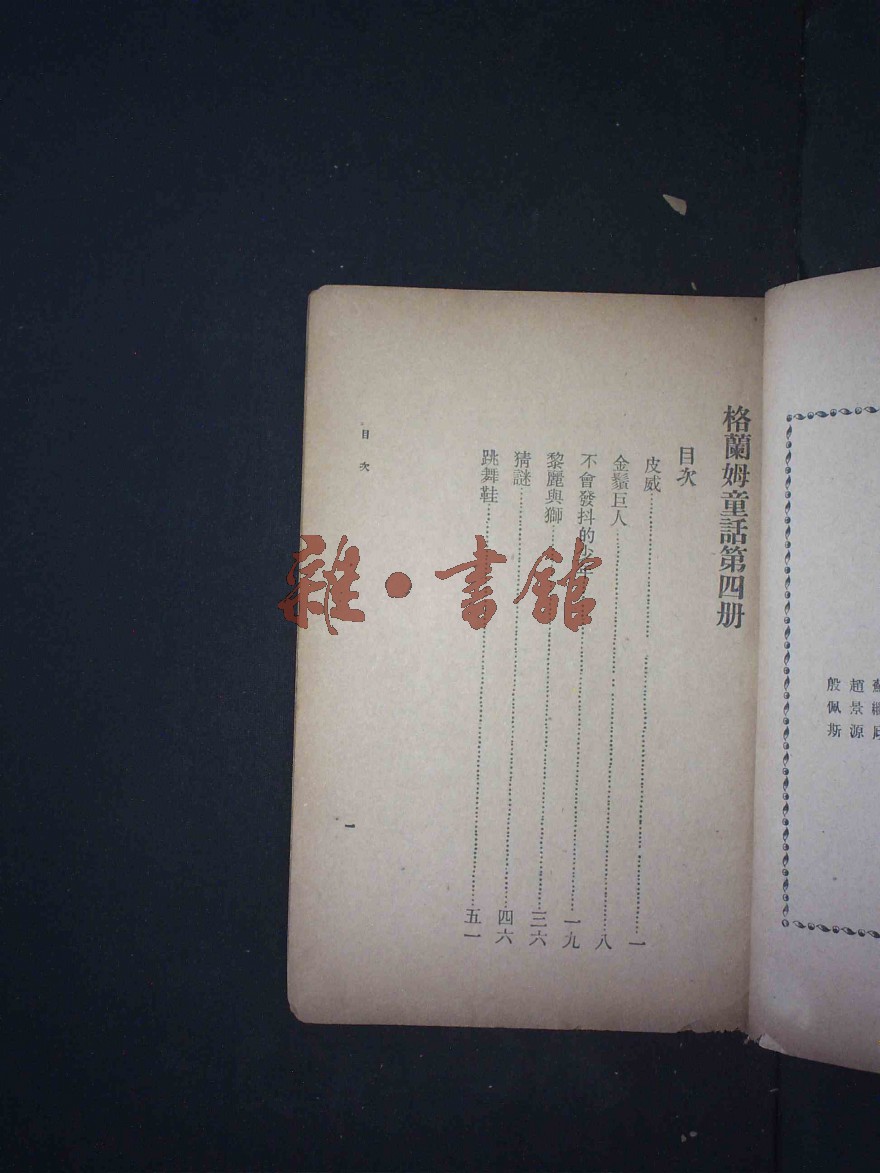 殷佩斯
趙景源
格蘭姆童話第四册
目次
皮威 一
金鬚巨人 八
不會發抖的少年 一九
黎麗與獅 三六
猜謎 四六
跳舞鞋 五一
目次
一
雜·書館